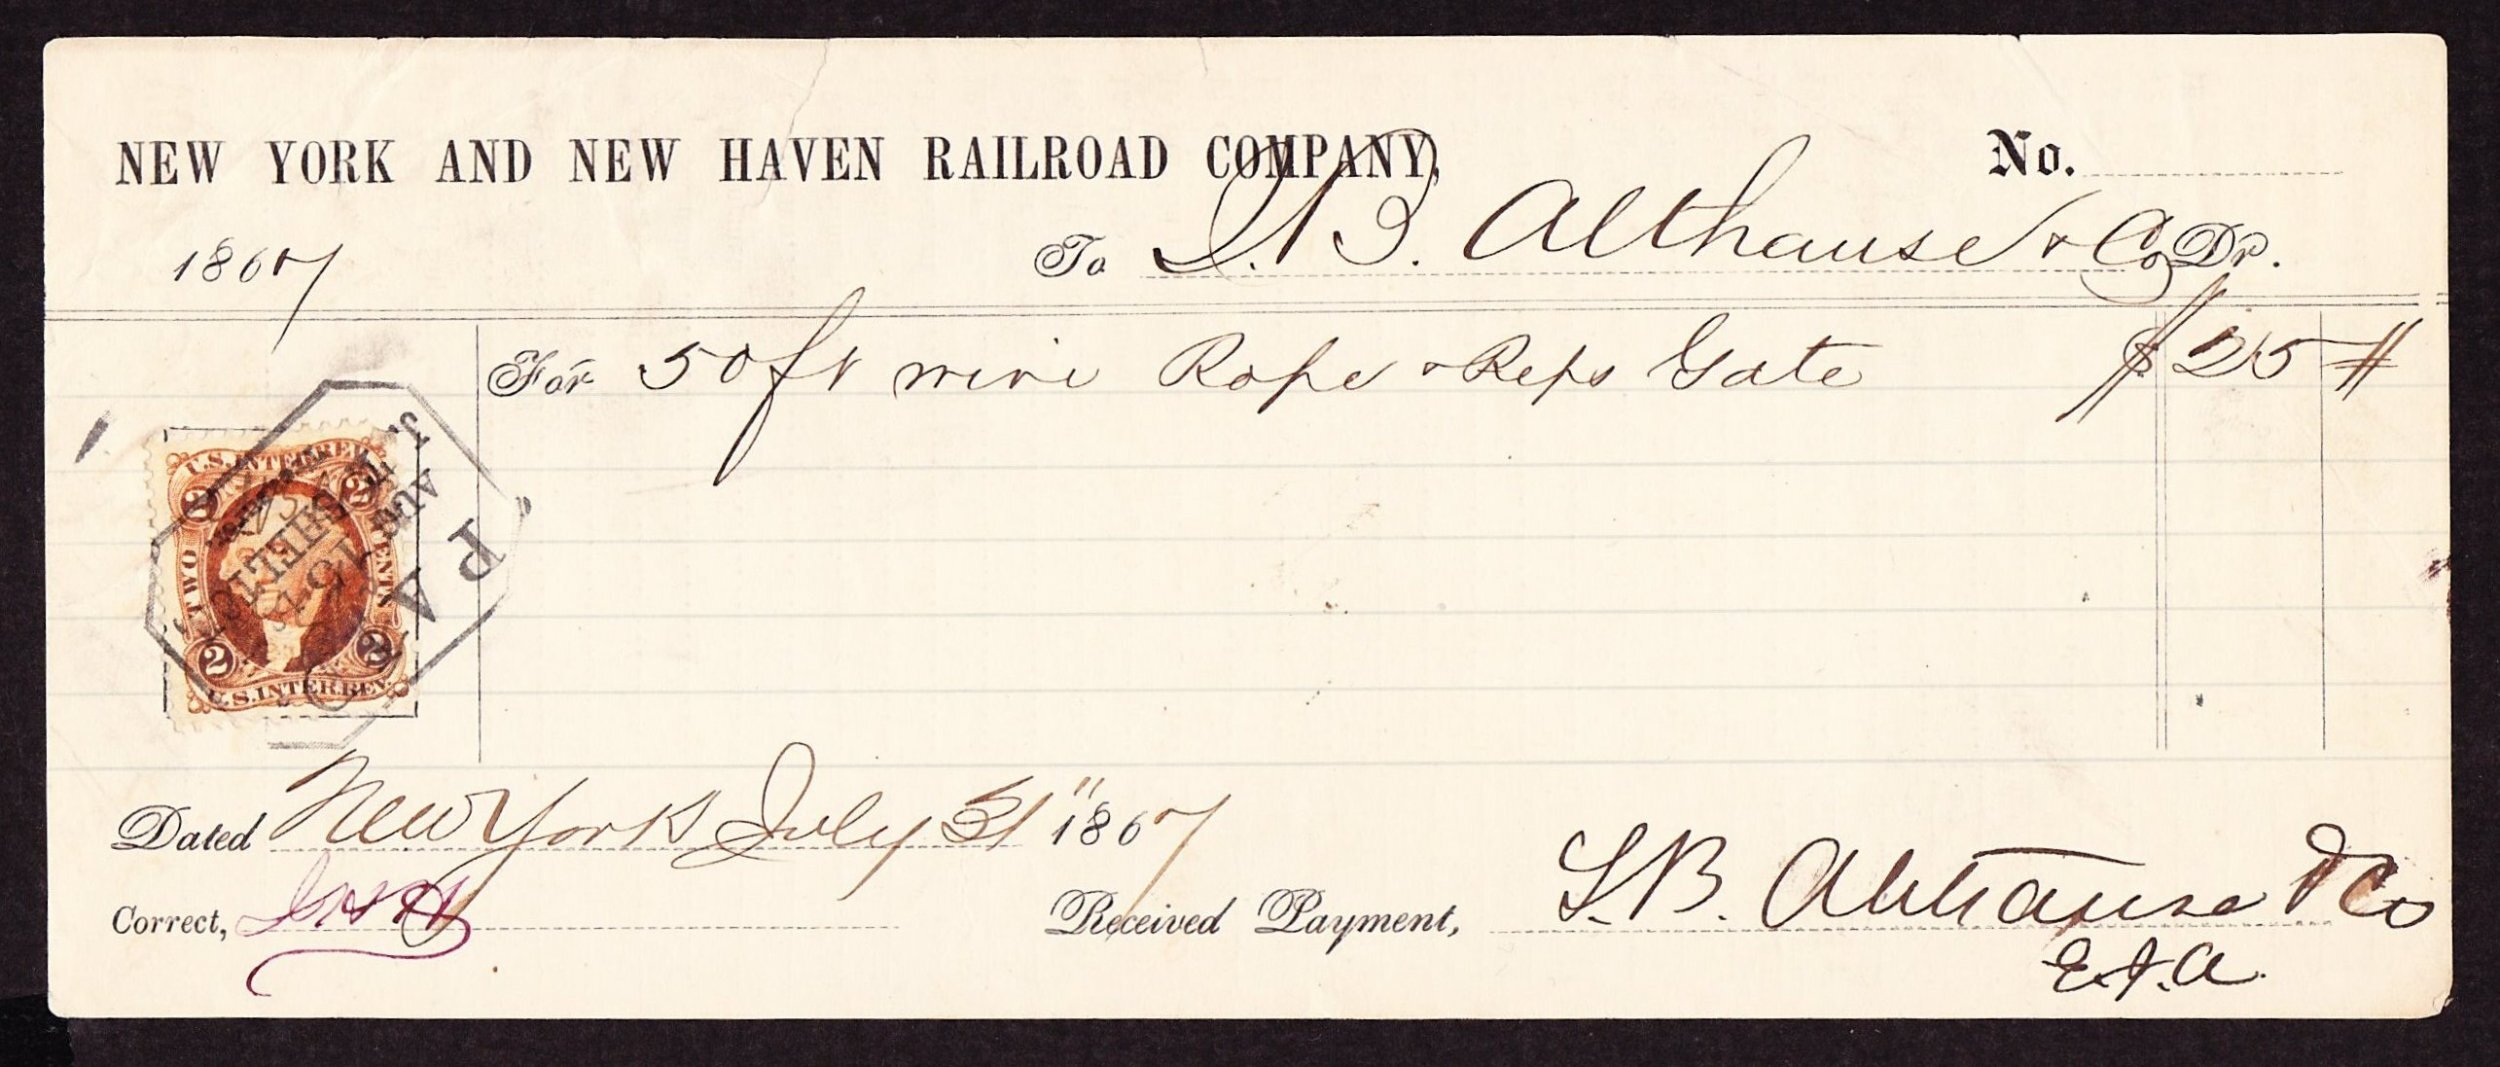 NEW YORK AND NEW HAVEN RAILROAD COMPANY, No.
1867 To S. B. Althause & Co Dr.
For 50 ft wire Rope & Reps Gate $ 25 #
U.S. INTER. REV.
2 2
TWO CENTS
2 2
U.S. INTER. REV.
J. T. SHELTON
AUG 15
PAR
Dated New York July 31" 1867
Correct,
Received Payment, S. B. Althause & Co
E.J.A.